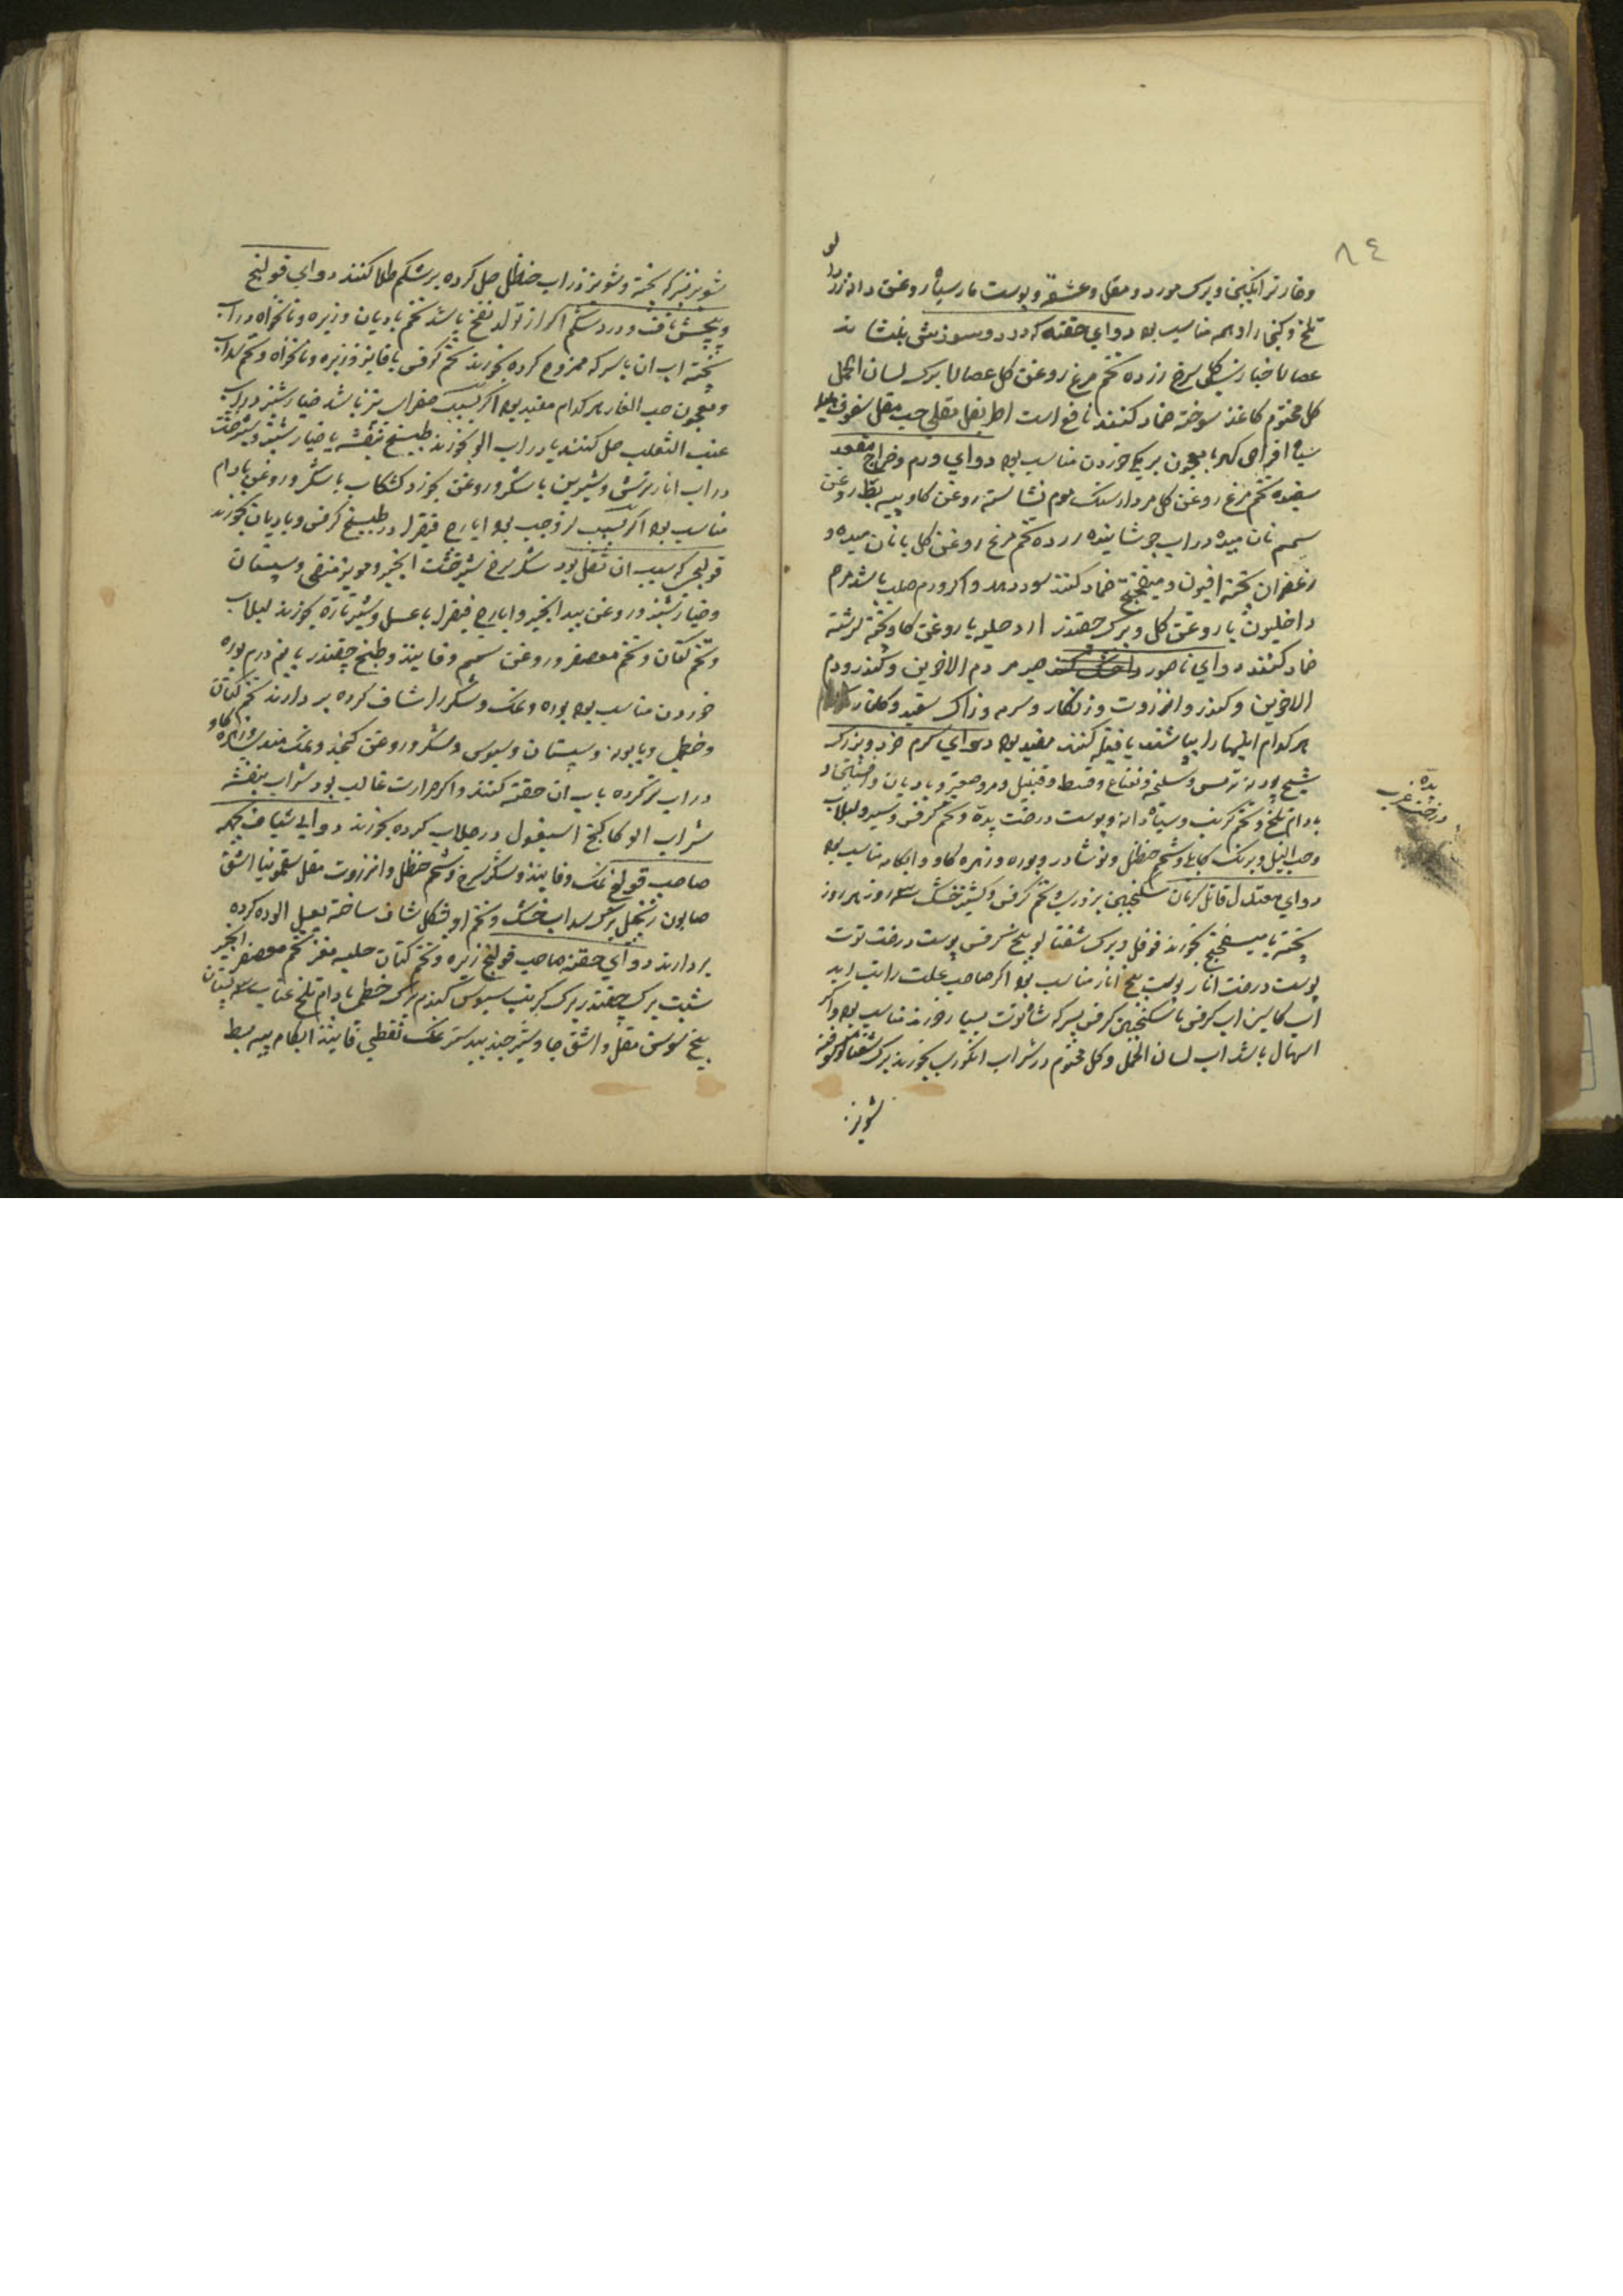 ٨٤
وخار تر انکبین وبرک مورد و مقل وعشقه وپوست مار سیاه روغن دانه زرد الو
تلخ و کنجاراد همه مناسب بود دوای حقنه که درد وسوزش بنشاند
عصا خیار کل سرخ زرده تخم مرغ روغن کل عصا برک لسان الحمل
کل مختوم کاغذ سوخته ضماد کنند نافع است اطریفل مقلی حب مقل سفوف
اقراص کهربا معجون بریکی خوردن مناسب بود دوای ورم وخراج مقعد
سفیده تخم مرغ روغن کل مردارسنک موم نشاسته روغن کاو پیه بط روغن
سمسم نان میده در اب جوشانیده زرده تخم مرغ روغن کل با نان میده و
زعفران پخته افیون و میفختج ضماد کنند سود دهد واکر ورم صلب باشد مرهم
داخلیون با روغن کل وبرک چقندر ارد حلبه با روغن کاو پخته سرشته
ضماد کنند دوای ناصور صبر مر دم الاخوین وکندر ودم
الاخوین وکندر وانزروت وزنکار وسرمه وزاک سفید وکلنار
هر کدام اینها را بپاشند یا فتیله کنند مفید بود دوای کرم خرد وبزرک
شیح پودنه ترمس وسلیخه ونعناع وقسط وقنبیل ومر وصعتر وبادیان وافسنتین و
بادام تلخ وتخم کرنب وسیاه دانه وپوست درخت پده وتخم کرفس وسیر ولبلاب
وحب النیل وبرنک کابلی وشحم حنظل ونوشادر وبوره وزهره کاو وابکامه مناسب بود
دوای معتدل قاتل کرمان سکنجبین بزوری وتخم کرفس وکشنیز خشک سه روز هر روز
پخته با میفختج بخورند فوفل وبرک شفتالو بیخ کرفس پوست درخت توت
پوست درخت انار پوست بیخ انار مناسب بود اکر صاحب علت را تب اید
اب کاسنی اب کرفس با سکنجبین کرفس بسرکه شاتوت بسیار خورند مناسب بود واکر
اسهال باشد اب لسان الحمل وکل مختوم در شراب انکوری بخورند برک شفتالو کوفته
شونیز
پده
درخت غرب
شونیز بسرکه پخته وشونیز در اب حنظل حل کرده بر شکم طلا کنند دوای قولنج
وپیچش ناف ودرد شکم اکر از تولد نفخ باشد تخم بادیان وزیره ونانخواه در اب
پخته اب ان با سرکه ممزوج کرده بخورند تخم کرفس با فانیذ وزیره ونانخواه وتخم سداب
ومعجون حب الغار هر کدام مفید بود اکر بسبب صفرای تیز باشد خیارشنبر در اب
عنب الثعلب حل کنند یا در اب الو بخورند طبیخ بنفشه یا خیارشنبر وشیرخشت
در اب انار ترش وشیرین با شکر وروغن بخورد کشکاب با شکر وروغن بادام
مناسب بود اکر بسبب لزوجت بود ایارج فیقرا در طبیخ کرفس وبادیان بخورند
قولنجی که سبب ان ثقل بود شکر سرخ شیرخشت انجیر ومویز منقی وسپستان
وخیارشنبر وروغن بید انجیر وایارج فیقرا با عسل وشیر تازه بخورند لبلاب
وتخم کتان وتخم معصفر وروغن سمسم وفانیذ وطبخ چقندر با نیم درم بوره
خوردن مناسب بود بوره ونمک وشکر را شاف کرده بر دارند تخم کتان
وخطمی وبابونه وسپستان وسبوس وشکر وروغن کنجد ونمک هندی وزهره کاو
در اب تر کرده باب ان حقنه کنند واکر حرارت غالب بود شراب بنفشه
شراب الو کاکنج اسبغول در جلاب کرده بخورند دوایی شیاف بجهه
صاحب قولنج نمک وفانیذ وشکر سرخ وشحم حنظل وانزروت مقل سقمونیا اشق
صابون زنجبیل برک سداب خشک وتخم او بشکل شاف ساخته بعسل الوده کرده
بردارند دوای حقنه صاحب قولنج زیره وتخم کتان حلبه مغز تخم معصفر انجیر
شبت برک چقندر برک کرنب سبوس کندم برک خطمی بادام تلخ عناب سپستان
بیخ سوسن مقل واشق جاوشیر جندبیدستر نمک نفطی فانیذ ابکامه پیه بط